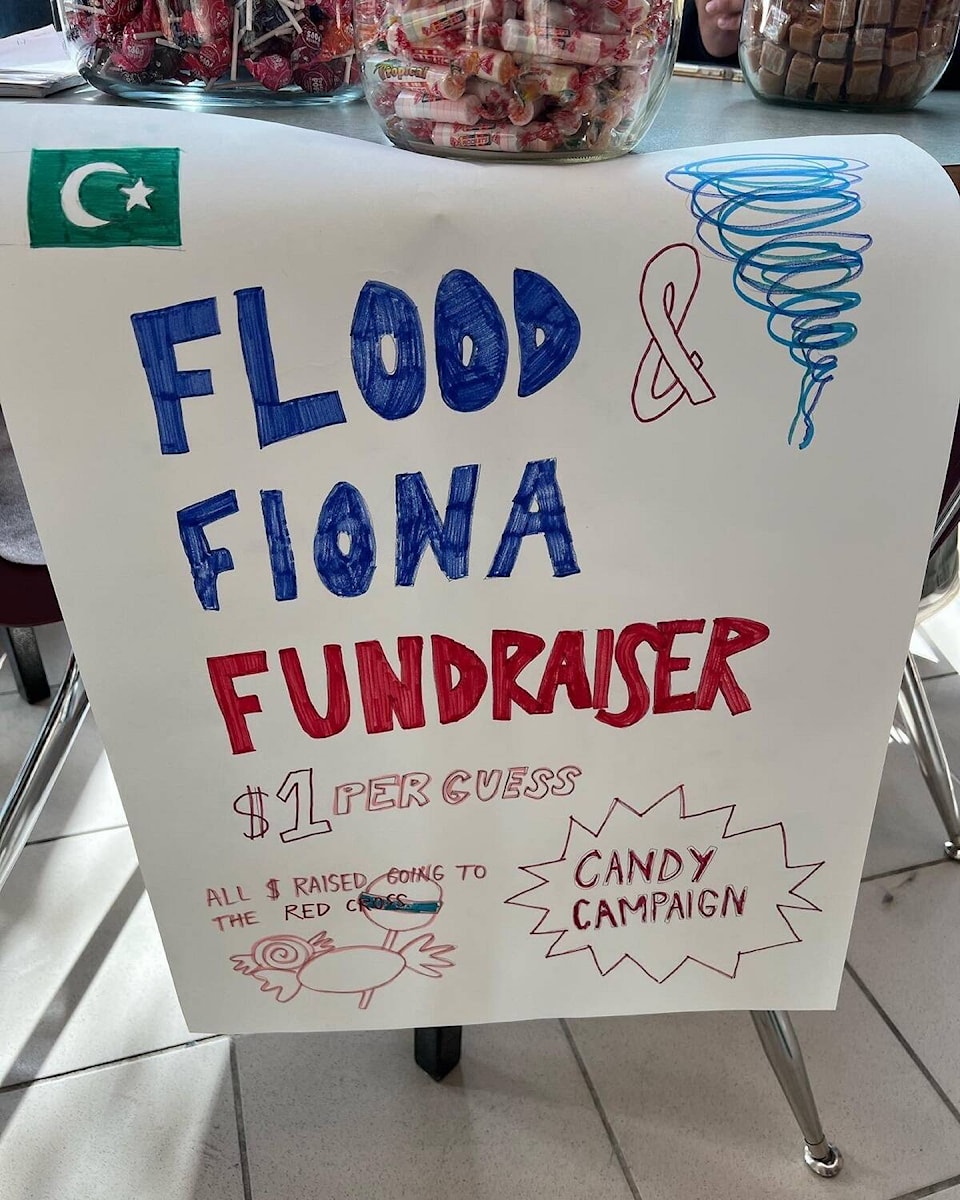 Tropical
FLOOD &
FIONA
FUNDRAISER
$1 PER GUESS
ALL $ RAISED GOING TO
THE RED CROSS.
CANDY
CAMPAIGN